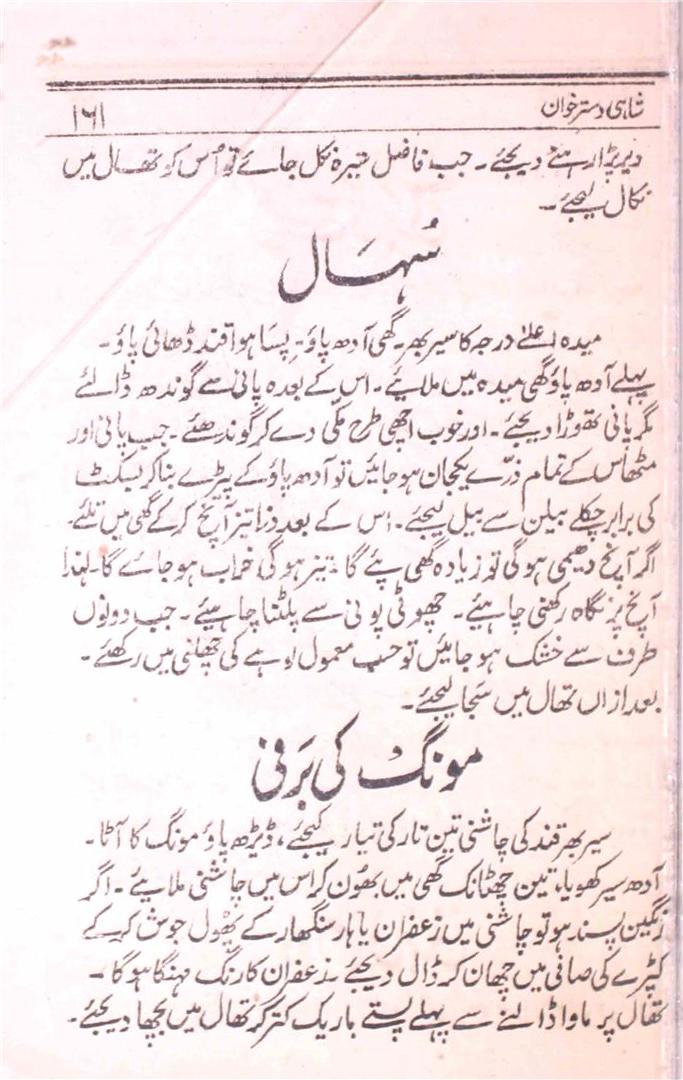 شاہی دسترخوان
۱۶۱
دیر پڑا رہنے دیجئے۔ جب فاضل شیرہ نکل جائے تو اُس کو تھال میں
نکال لیجئے۔
سُہَال
میدہ اعلےٰ درجہ کا سیر بھر۔ گھی آدھ پاؤ۔ پسا ہوا قند ڈھائی پاؤ۔
پہلے آدھ پاؤ گھی میدہ میں ملایئے۔ اس کے بعدہ پانی سے گوندھ ڈالئے
مگر پانی تھوڑا دیجئے۔ اور خوب اچھی طرح مکی دے کر گوندھئے۔ جب پانی اور
مٹھاس کے تمام ذرّے یکجان ہو جائیں تو آدھ پاؤ کے پیڑے بنا کر بسکٹ
کی برابر چکلے بیلن سے بیل لیجئے۔ اس کے بعد ذرا تیز آنچ کر کے گھی میں تلئے۔
اگر آنچ دھیمی ہوگی تو زیادہ گھی پئے گا، تیز ہوگی خراب ہو جائے گا۔ لہٰذا
آنچ پر نگاہ رکھنی چاہیئے۔ چھوٹی پونی سے پلٹنا چاہیئے۔ جب دونوں
طرف سے خشک ہو جائیں تو حسب معمول لوہے کی چھلنی میں رکھئے۔
بعد ازاں تھال میں سَجا لیجئے۔
مونگ کی بَرفی
سیر بھر قند کی چاشنی تین تار کی تیار کیجئے، ڈیڑھ پاؤ مونگ کا آٹا۔
آدھ سیر کھویا، تین چھٹانک گھی میں بھون کر اس میں چاشنی ملایئے۔ اگر
رنگین پسند ہو تو چاشنی میں زعفران یا ہار سنگھار کے پھول جوش کر کے
کپڑے کی صافی میں چھان کر ڈال دیجئے۔ زعفران کا رنگ مہنگا ہوگا۔
تھال پر ماوا ڈالنے سے پہلے پستے باریک کتر کر تھال میں بچھا دیجئے۔